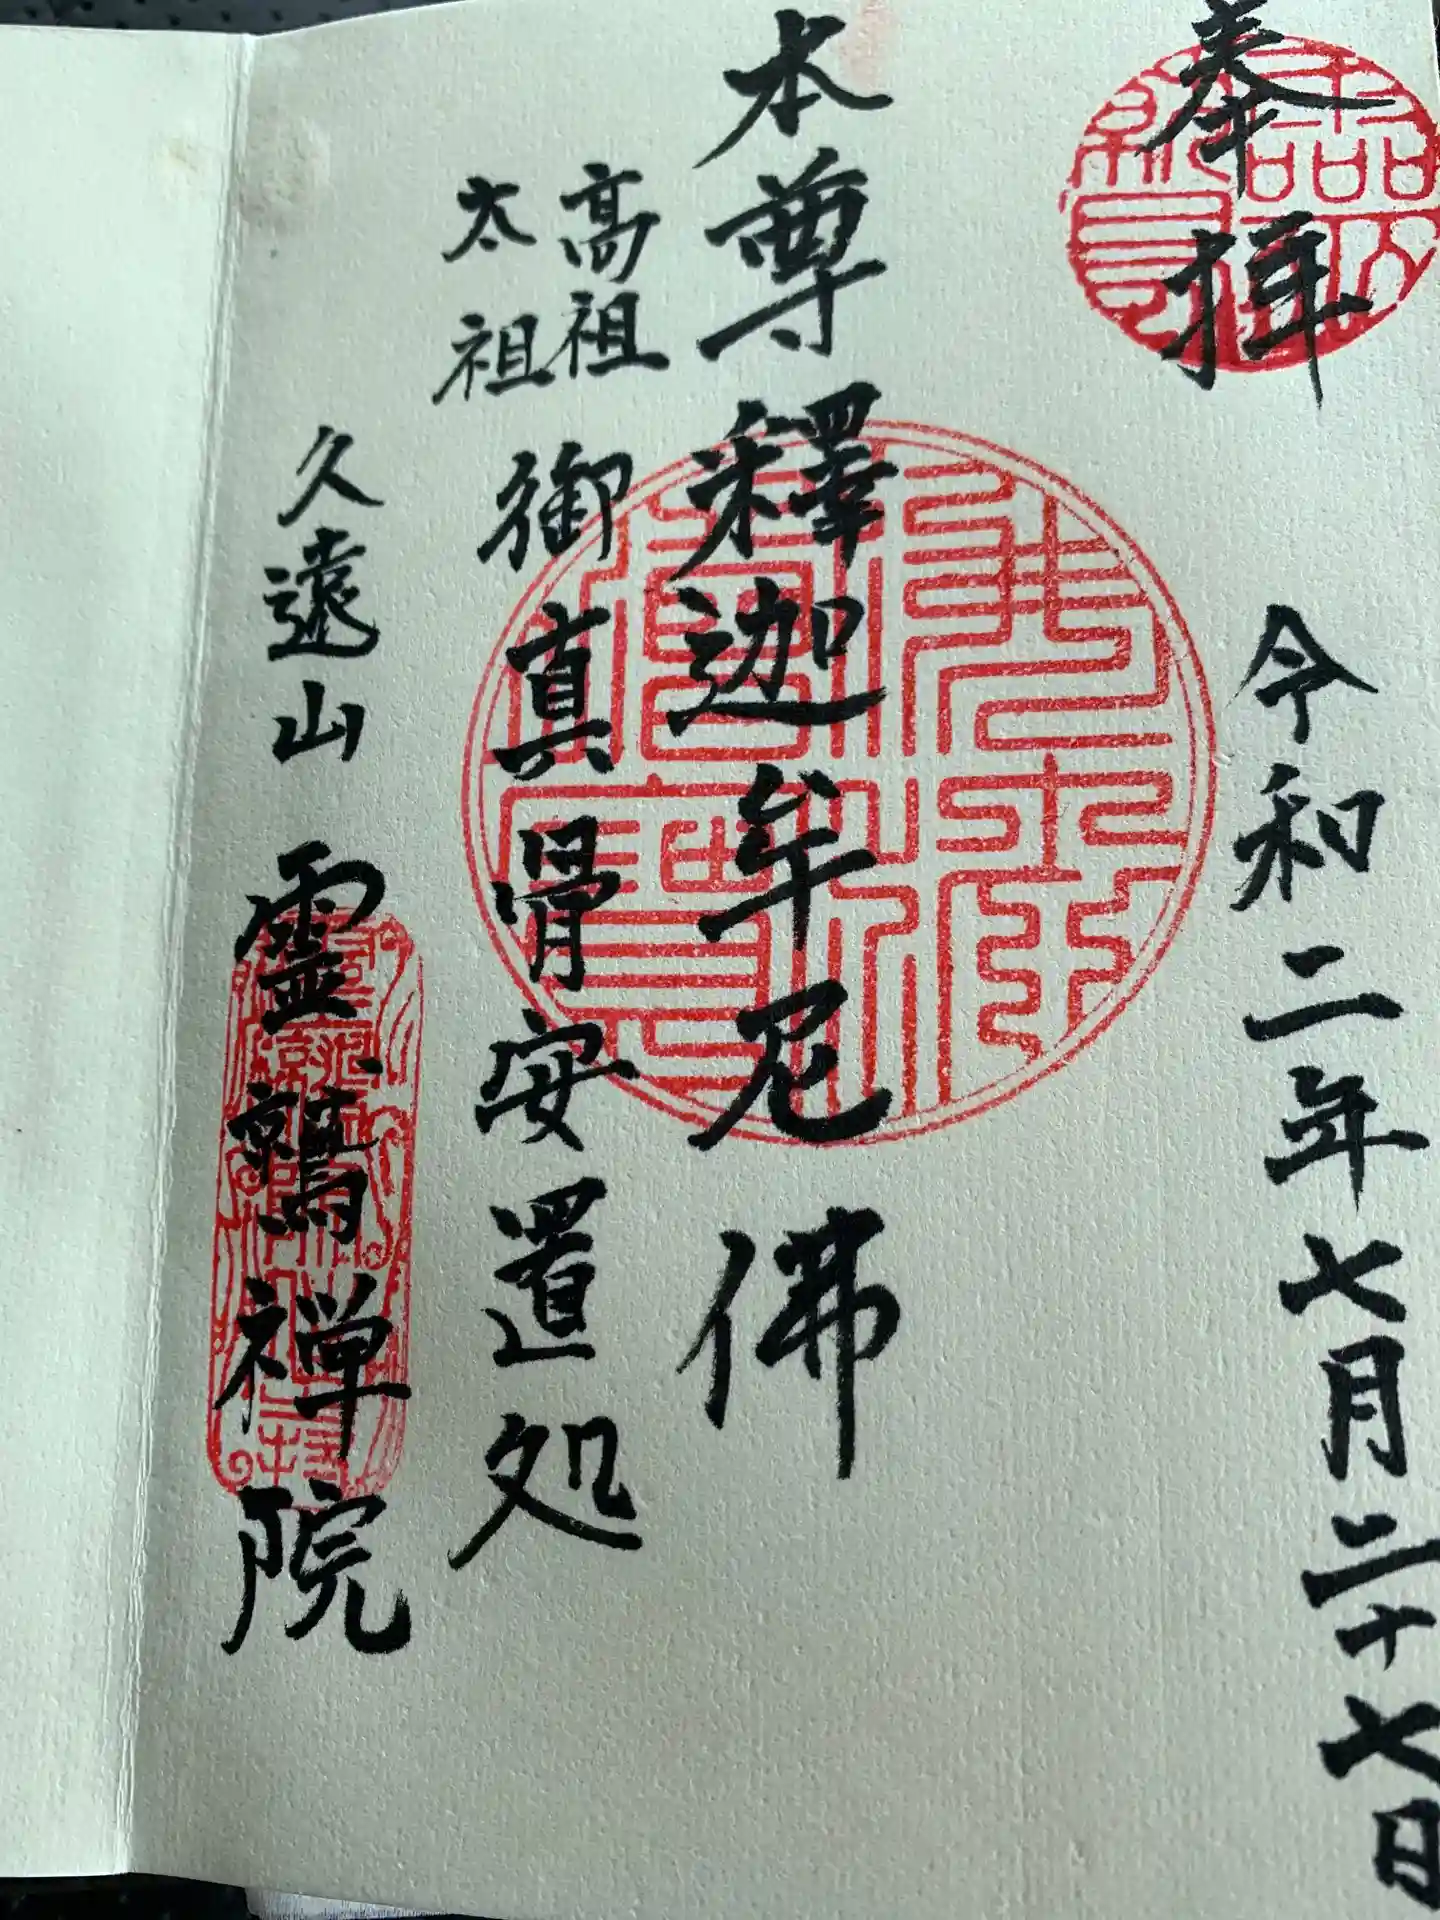 奉拝
令和二年七月二十七日
本尊釋迦牟尼佛
高祖
太祖
御真骨安置処
久遠山 靈鷲禅院
佛法僧寳